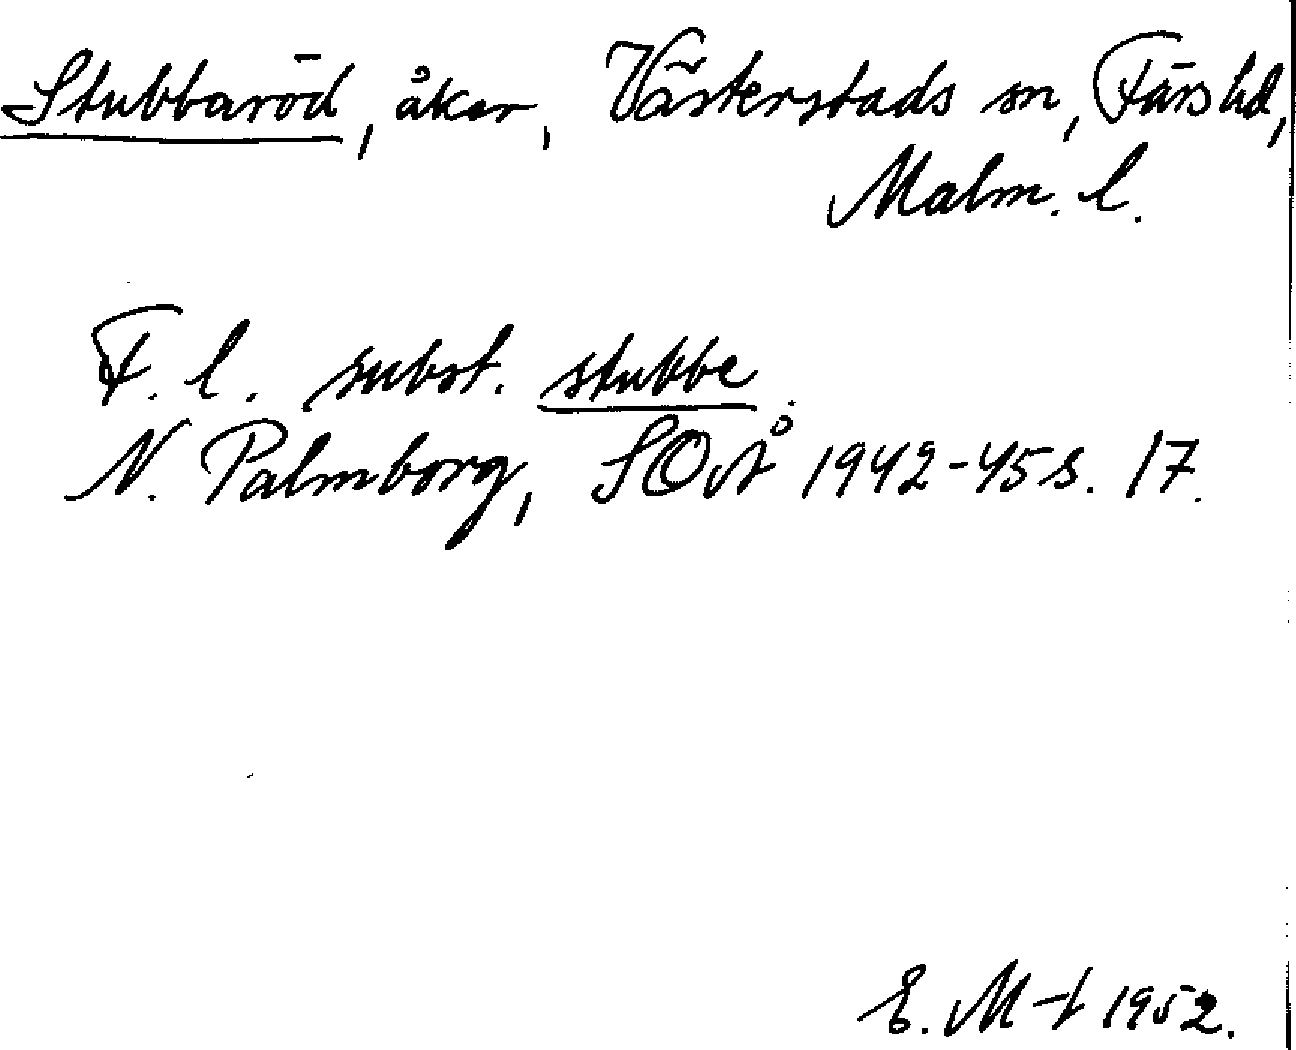 Stubbaröd, åker, Västerstads sn, Färs hd,
Malm. l.
F. l. subst. stubbe.
N. Palmborg, SOÅ 1942-45 s. 17.
E. M-t 1952.